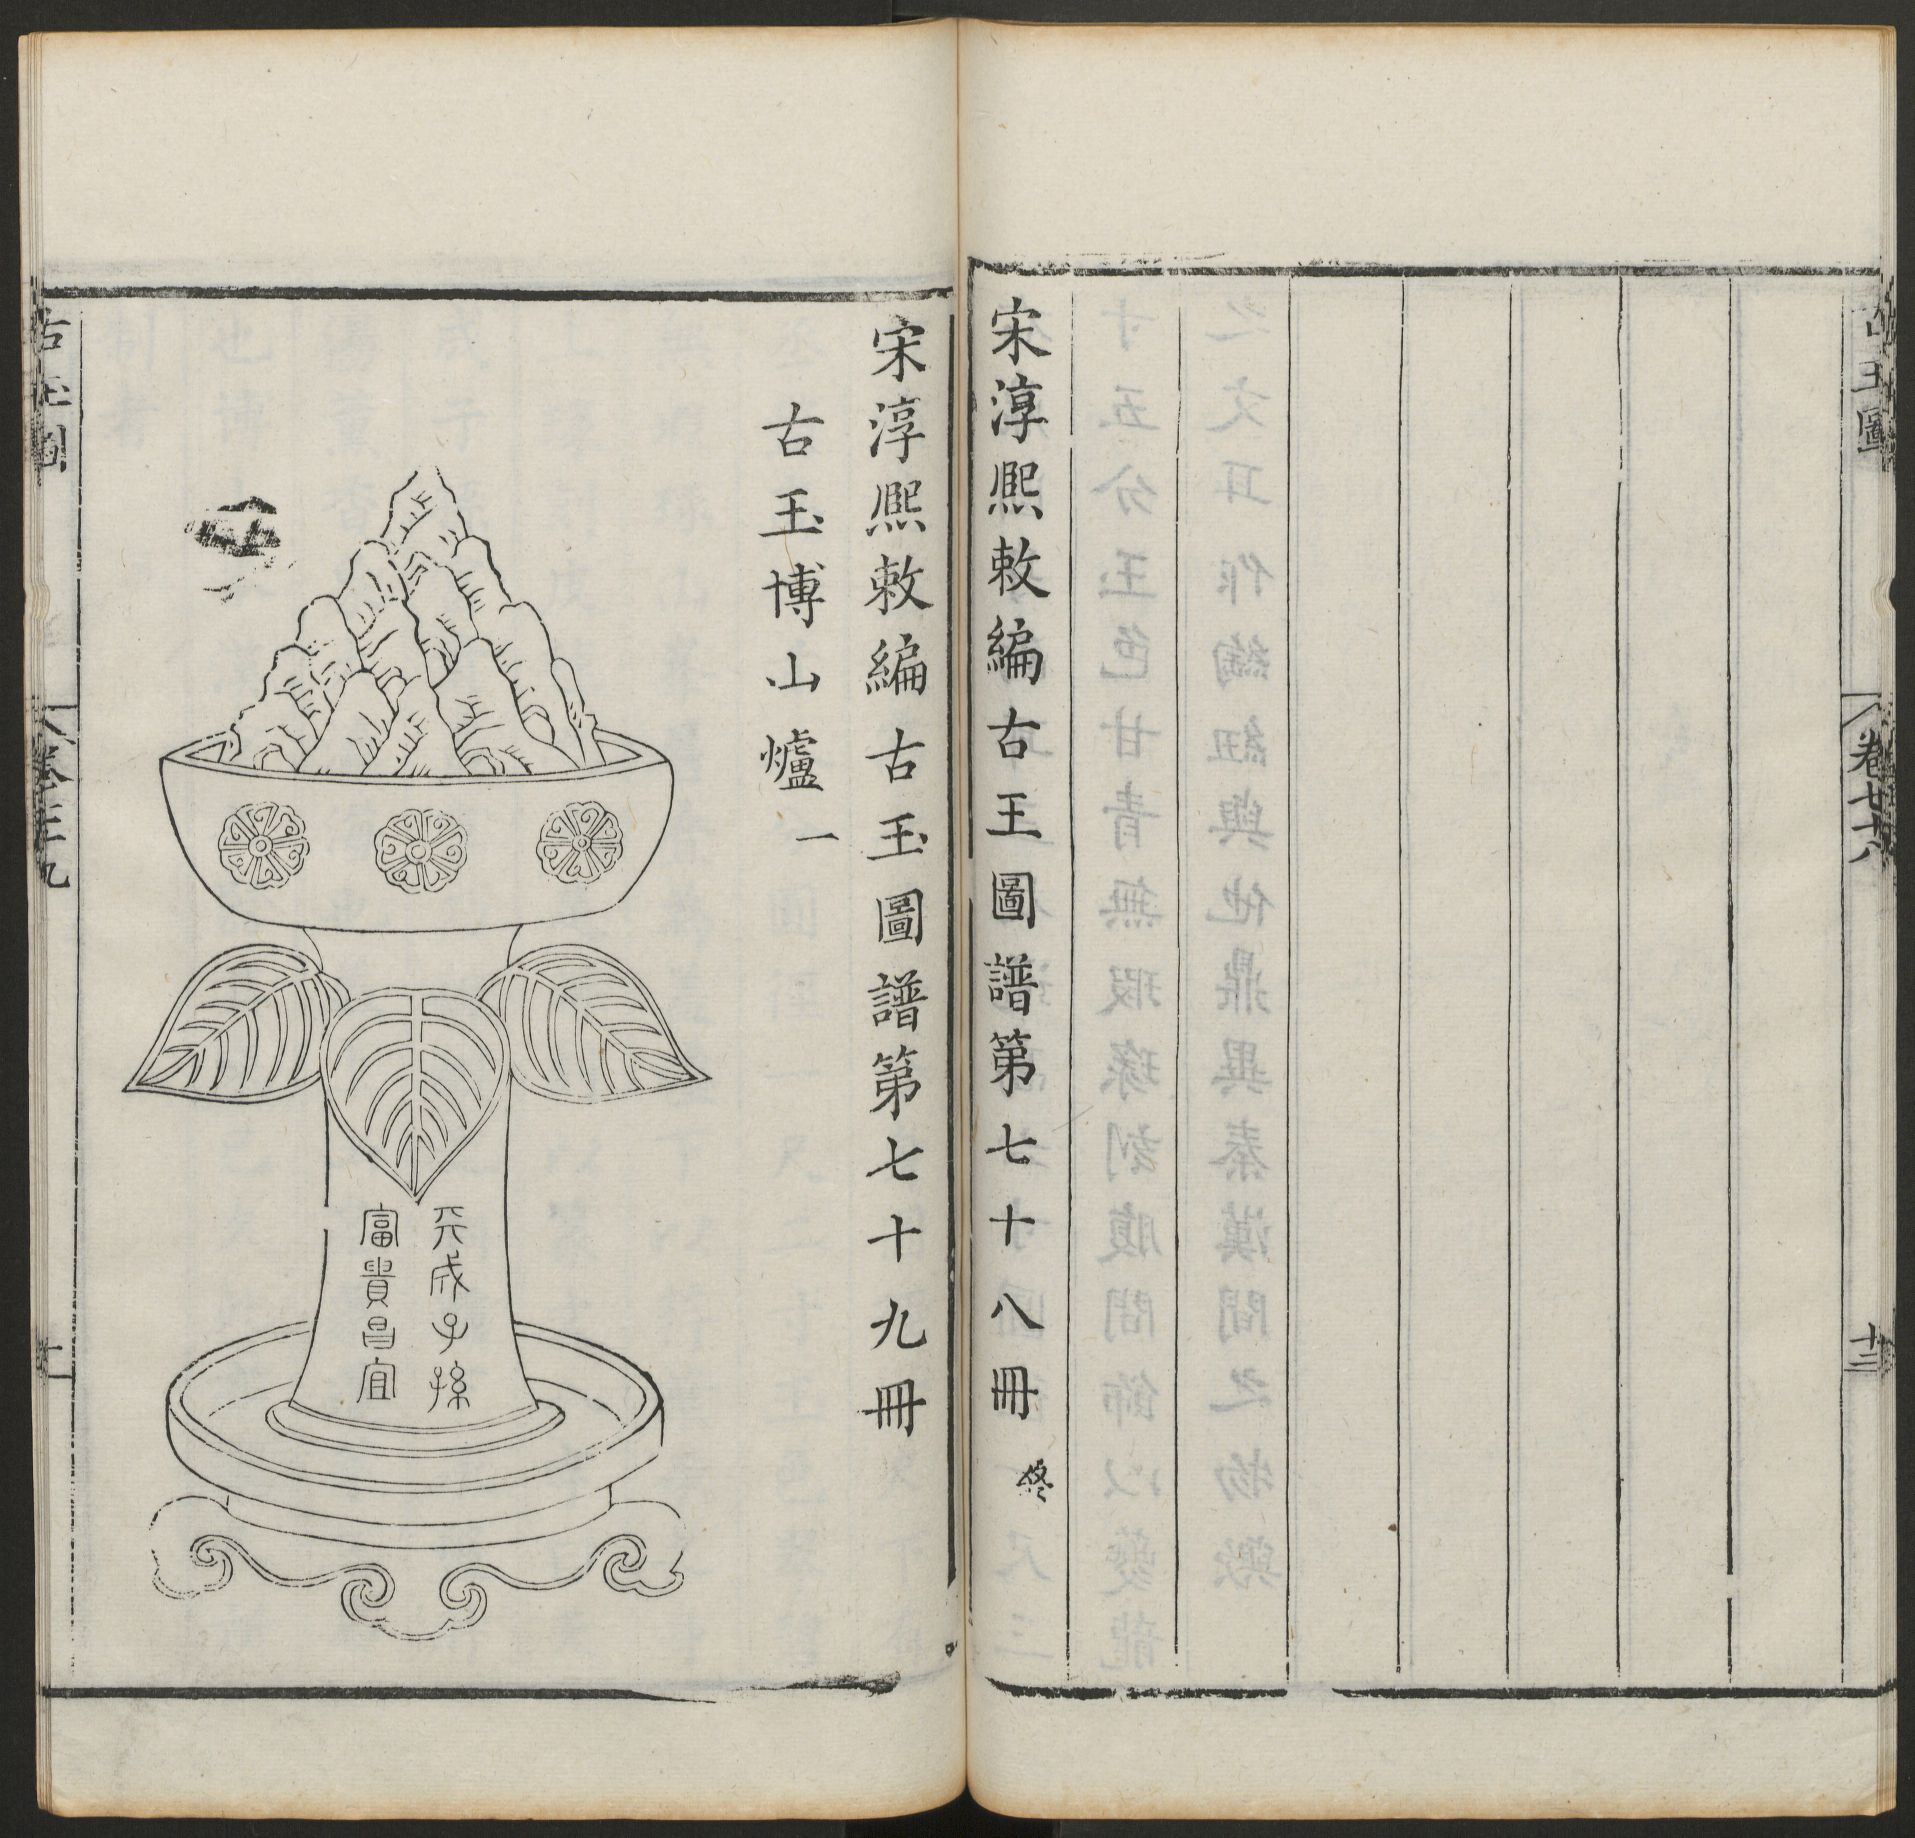 古玉圖
卷七十八
十三
宋淳熙敕編古王圖譜第七十八冊 終
宋淳熙敕編古玉圖譜第七十九冊
古玉博山爐一
成子孫
富貴昌宜
古玉圖